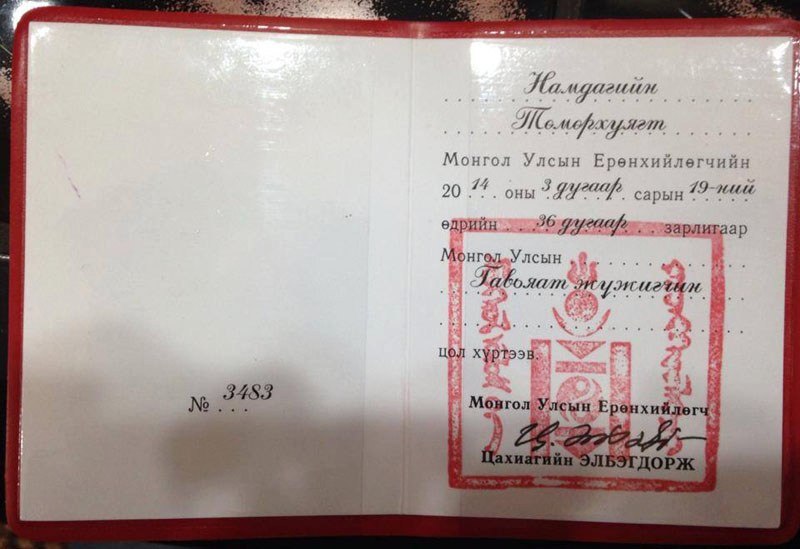 № 3483
Намдагийн
Төмөрхуягт
Монгол Улсын Ерөнхийлөгчийн
2014 оны 3 дугаар сарын 19-ний
өдрийн 36 дугаар зарлигаар
Монгол Улсын
Гавьяат жүжигчин
цол хүртээв.
Монгол Улсын Ерөнхийлөгч
Цахиагийн ЭЛБЭГДОРЖ